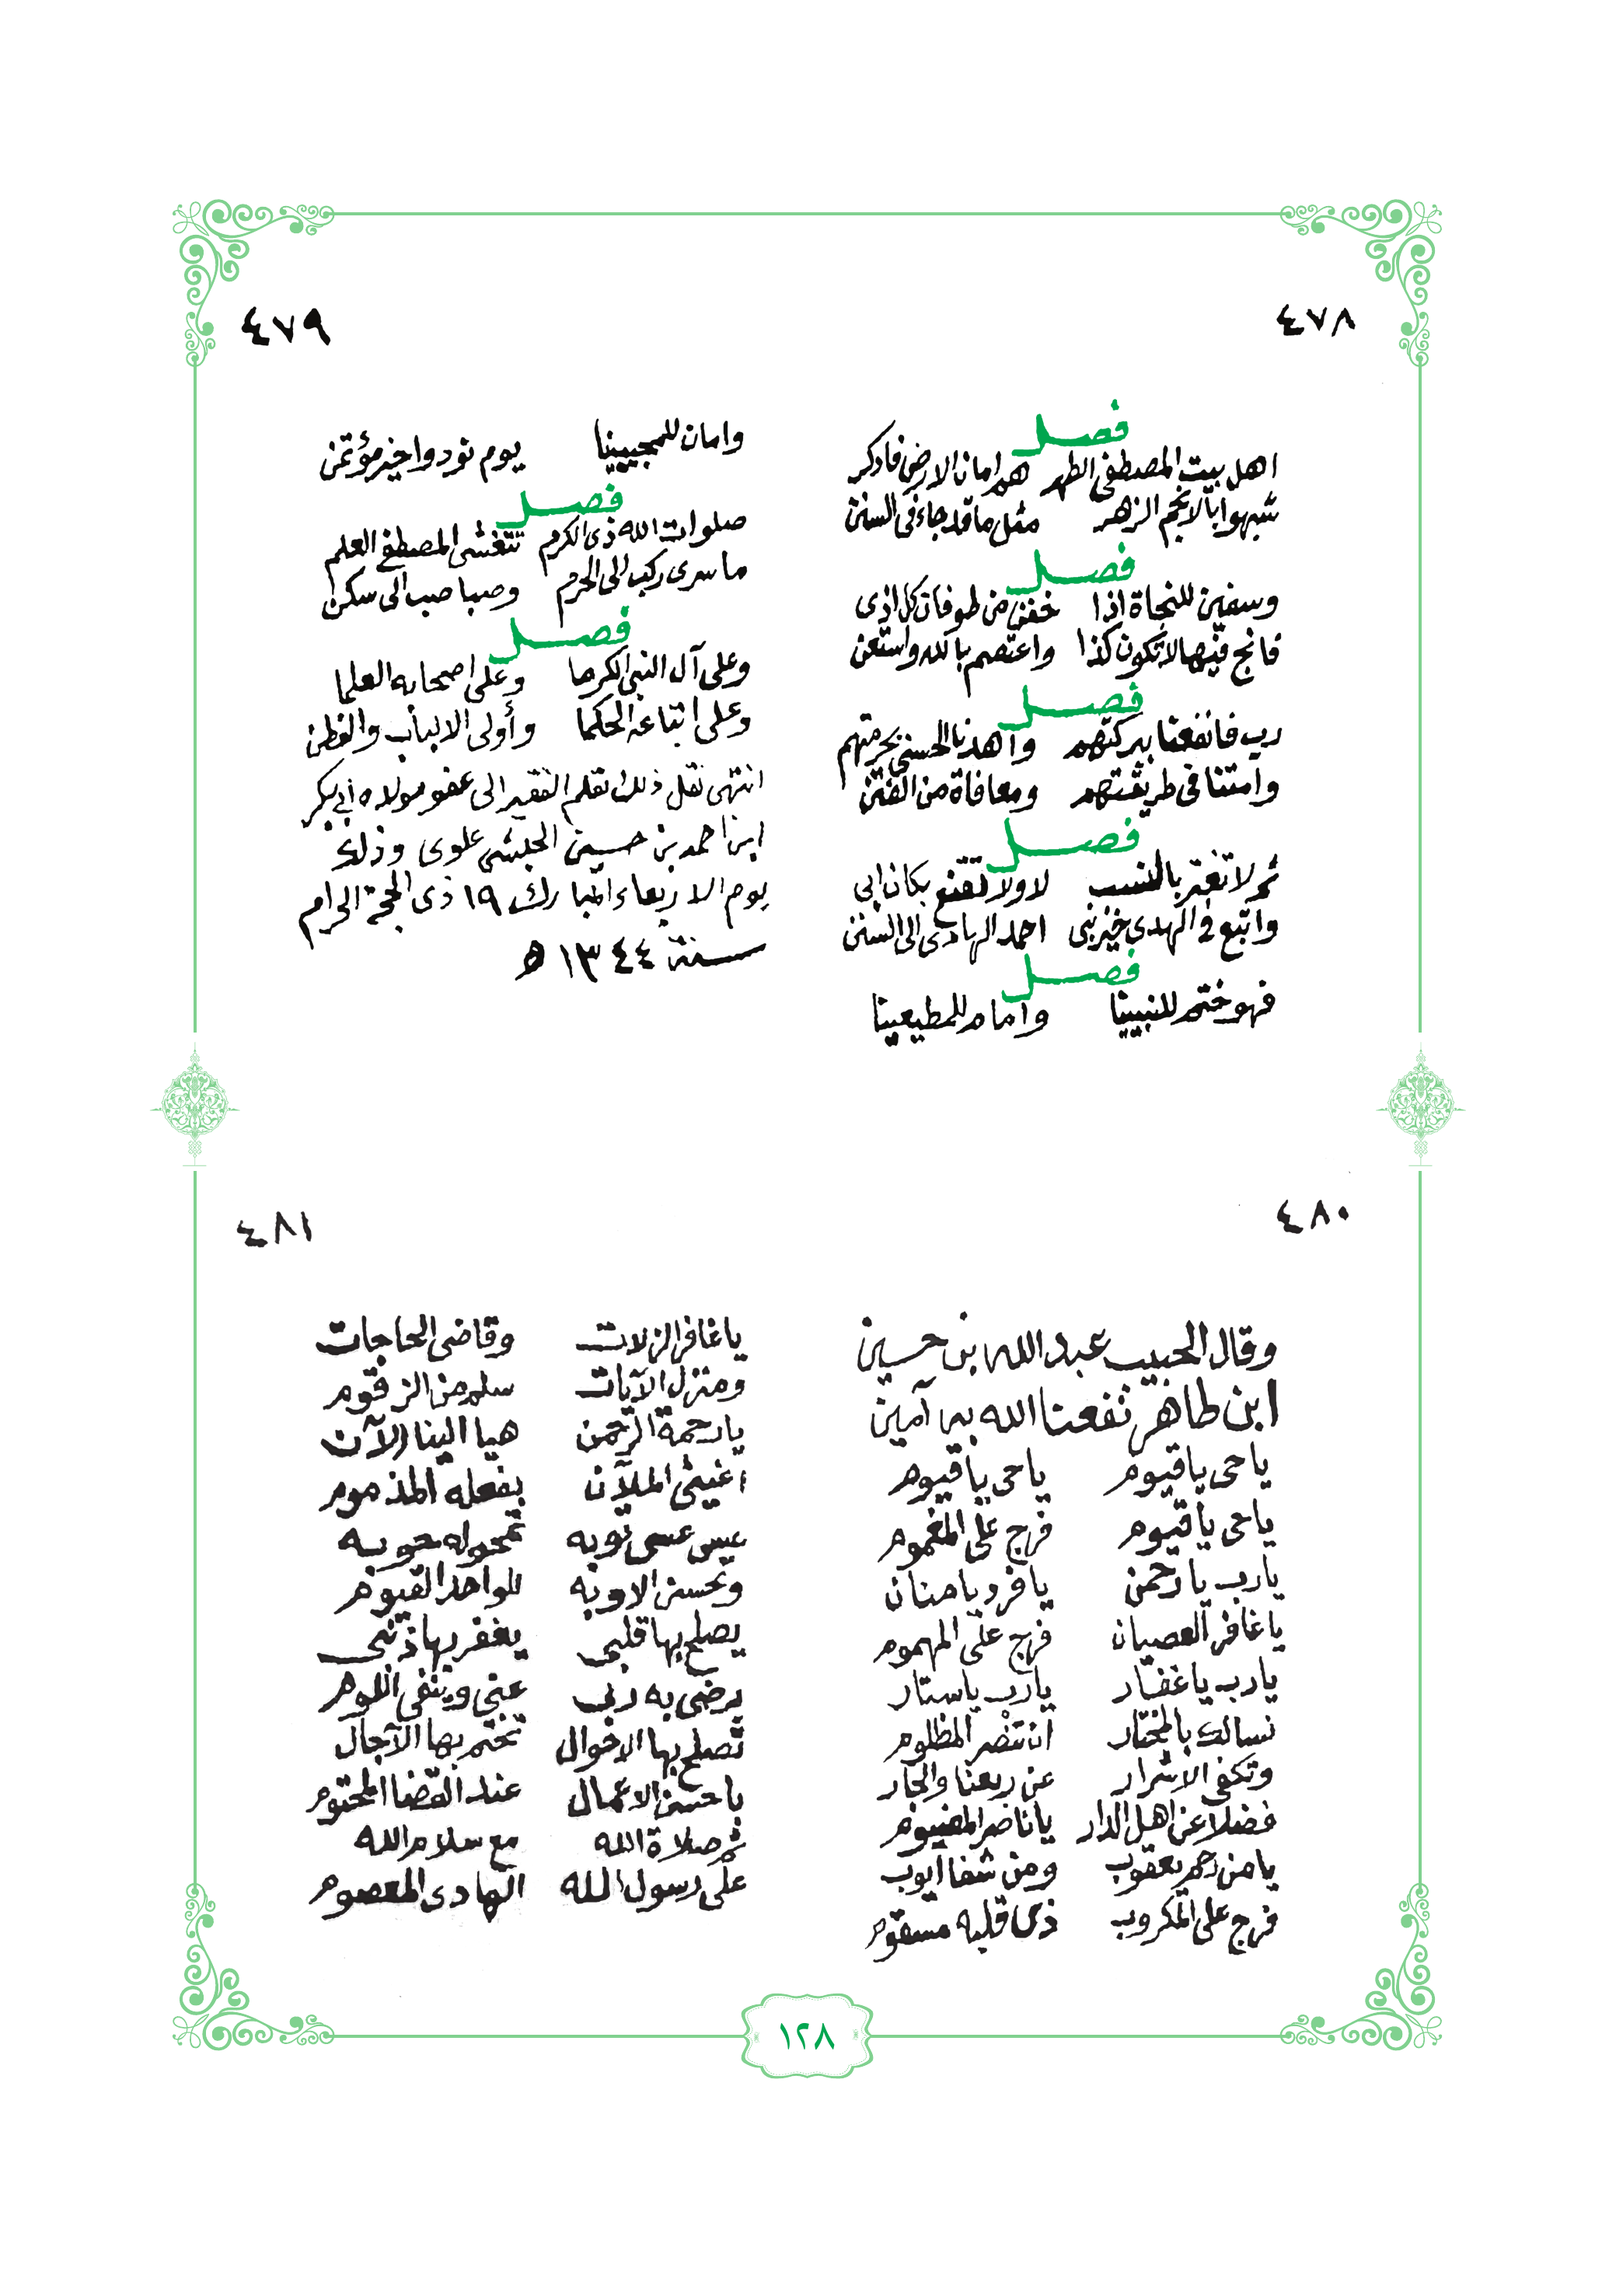 ٤٧٨
فصل
اهل بيت المصطفى الطهر هم امان الارض فادكر
شبهوا بالانجم الزهر مثل ما قد جاء في السنن
فصل
وسفين للنجاة اذا خفت من طوفان كل اذى
فانج فيها لا تكون كذا واعتصم بالله واستعن
فصل
رب فانفعنا ببركتهم واهدنا الحسنى بحرمتهم
وامتنا في طريقتهم ومعافاة من الفتن
فصل
ثم لا تغتر بالنسب لا ولا تقنع بكان ابي
واتبع في الهدى خير نبي احمد الهادى الى السنن
فصل
فهو ختم للنبيينا وامام للمطيعينا
٤٧٩
وامان للمجيبينا يوم نودوا خير مؤتمن
فصل
صلوات الله ذى الكرم تتغشى المصطفى العلم
ما سرى ركب الى الحرم وصبا صب الى سكن
فصل
وعلى آل النبي الكرما وعلى اصحابه العلما
وعلى اتباعه الحكما وأولى الالباب والفطن
انتهى نقل ذلك بقلم الفقير الى عفو مولاه أبي بكر
ابن احمد بن حسين الحبشي علوى وذلك
يوم الاربعاء المبارك ١٩ ذى الحجة الحرام
سنة ١٣٤٤ ه
٤٨٠
وقال الحبيب عبد الله بن حسين
ابن طاهر نفعنا الله به آمين
ياحى ياقيوم ياحى ياقيوم
ياحى ياقيوم فرج على المغموم
يارب يارحمن يافرد يامنان
ياغافر العصيان فرج على المهموم
يارب ياغفار يارب ياستار
نسالك بالمختار ان تنصر المظلوم
وتكفى الاشرار عن ربعنا والجار
فضلا عن اهل الدار ياناصر المضيوم
يامن رحم يعقوب ومن شفا ايوب
فرج على المكروب ذى قلبه مسقوم
٤٨١
ياغافر الزلات وقاضى الحاجات
ومنزل الآيات سلم من الزقوم
يارحمة الرحمن هيا الينا الآن
اغيثى الملآن بفعله المذموم
عسى عسى توبه تمحو له حوبه
وتحسن الاوبه للواحد القيوم
يصلح بها قلبى يغفر بها ذنبى
يرضى به ربى عنى وينفى اللوم
تصلح بها الاحوال تختم بها الآجال
ياحسن الاعمال عند القضا المحتوم
ثم صلاة الله مع سلام الله
على رسول الله الهادى المعصوم
١٢٨